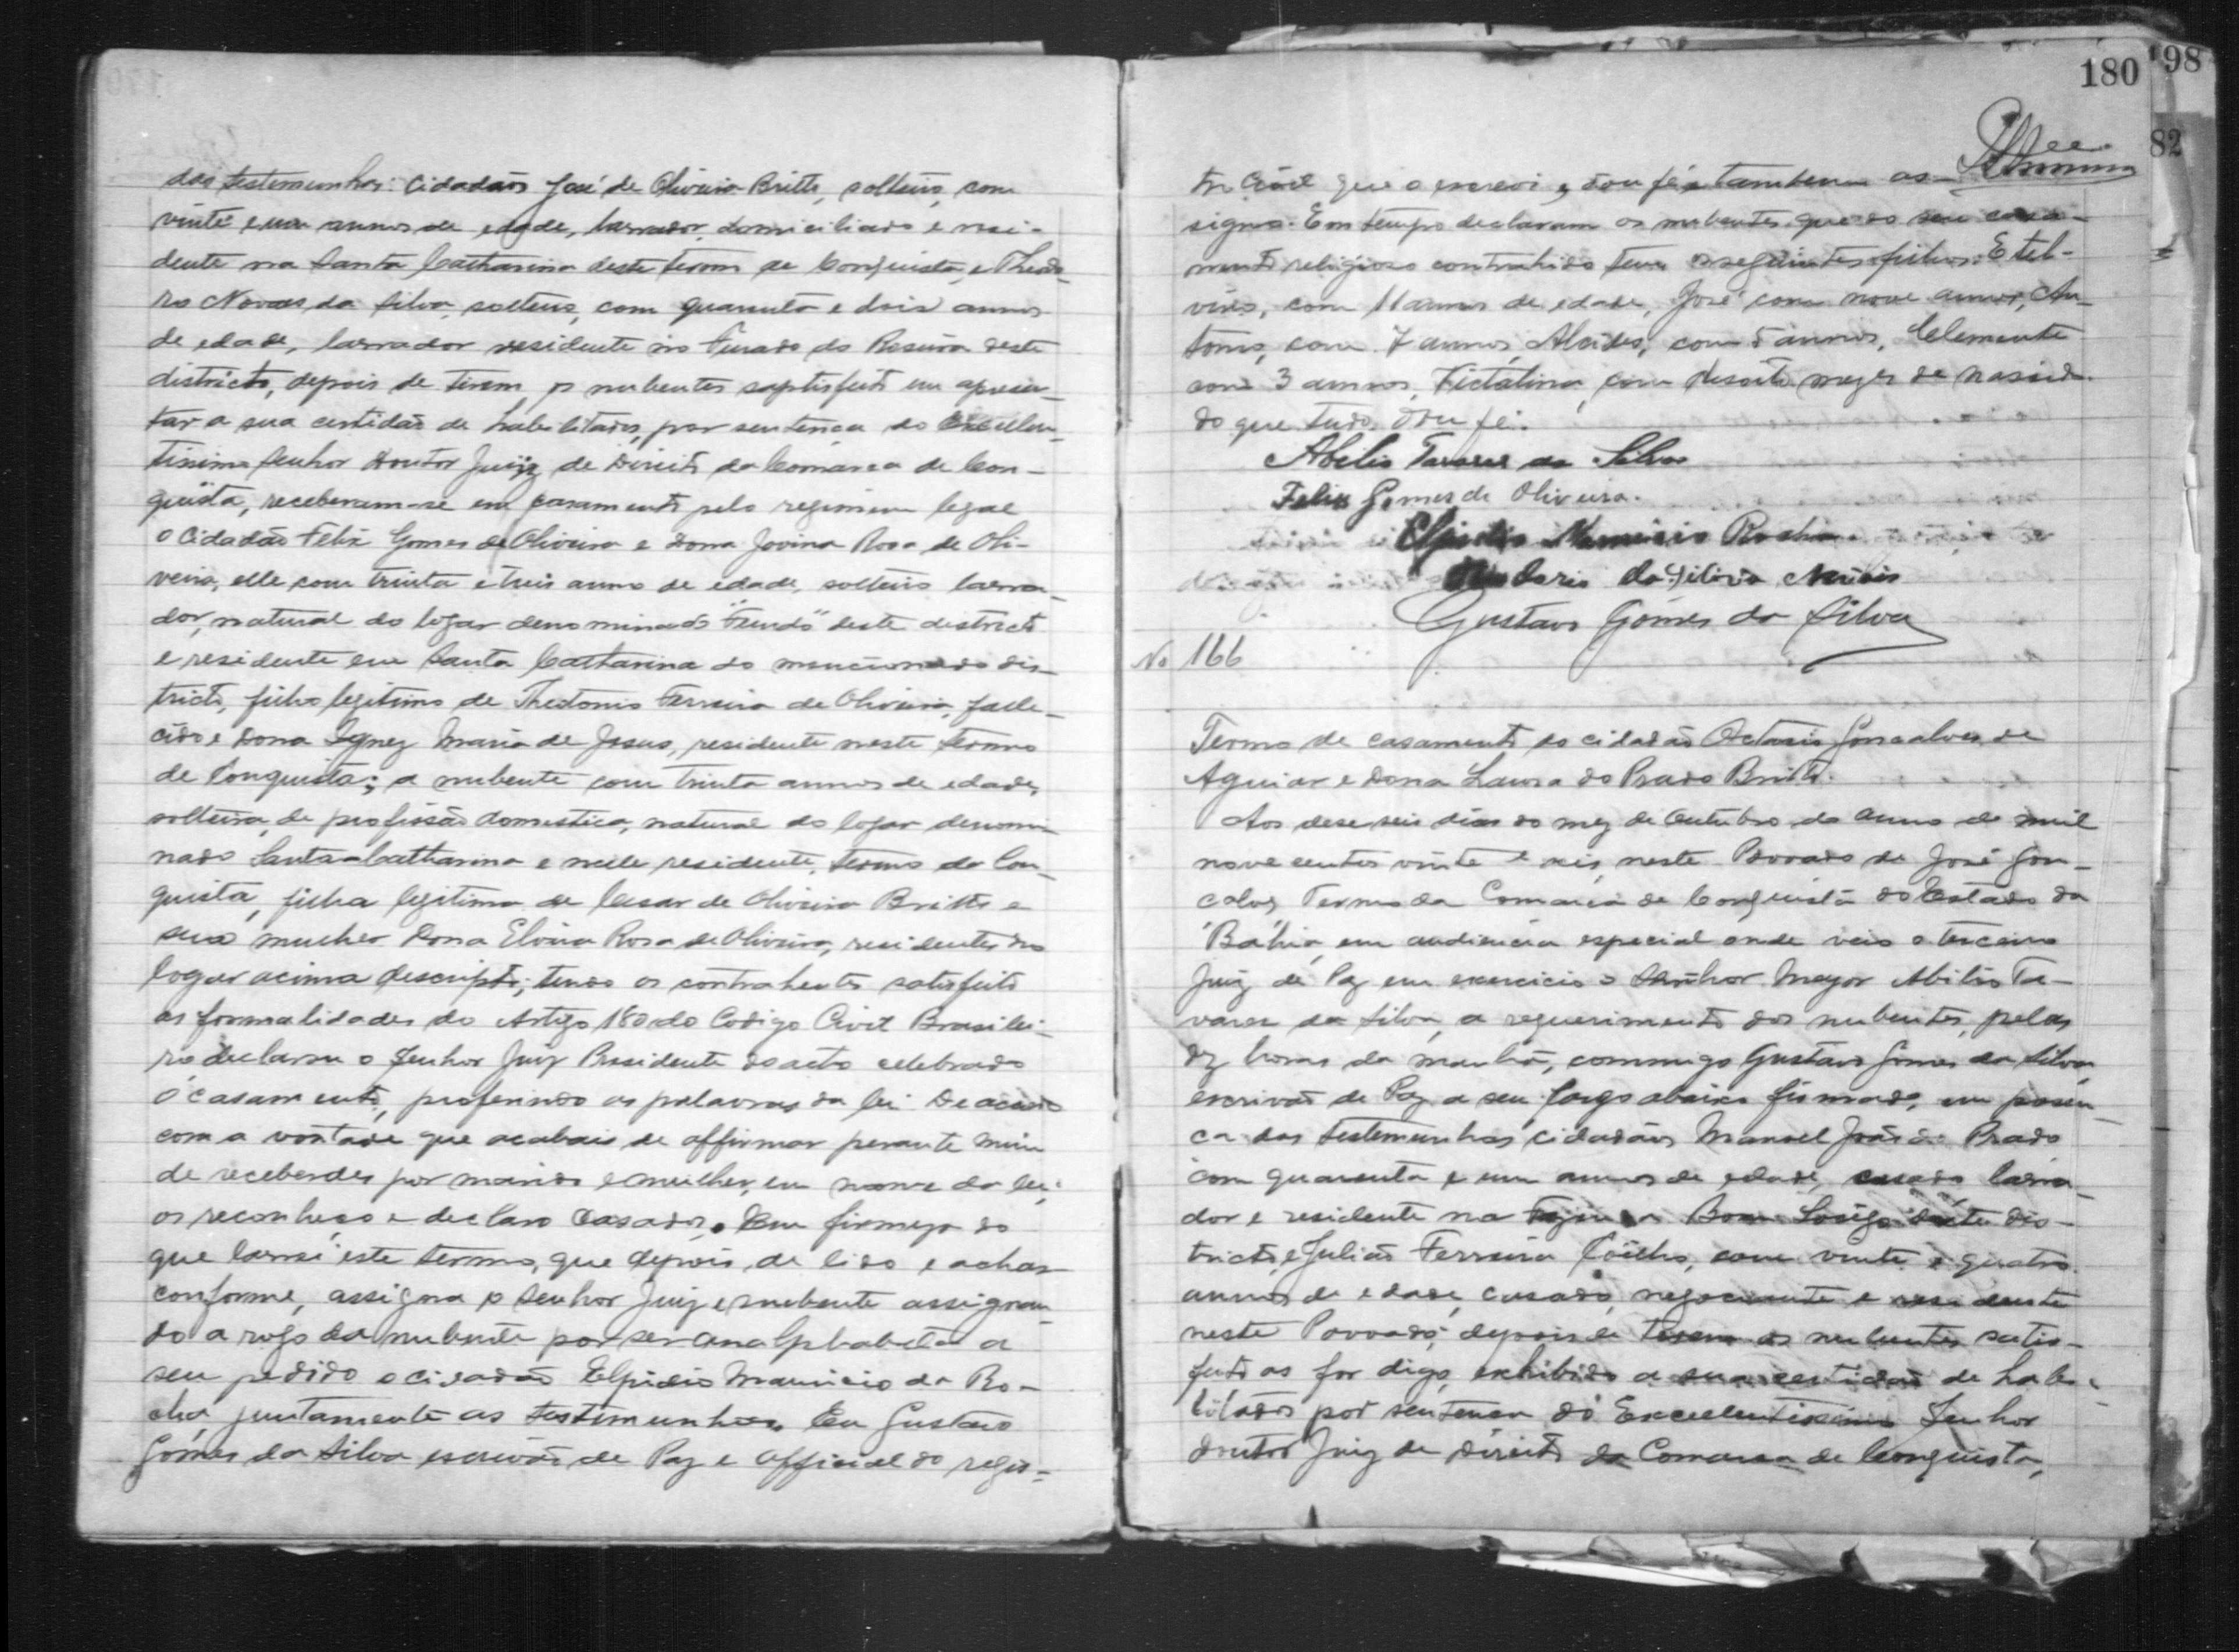 das testemunhas: Cidadãos José de Oliveira Britto, solteiro, com
vinte e um annos de edade, lavrador, domiciliado e resi-
dente na Santa Catharina deste termo de Conquista, e Theodo
ro Novaes da Silva, solteiro, com quarenta e dois annos
de edade, lavrador residente no Furado do deste
districto, depois de terem os nubentes saptisfeito em apresen-
tar a sua certidão de habilitados, por sentença do Excellen-
tissimo Senhor Doutor Juiz de Direito da Comarca de Con-
quista, receberam-se em casamento pelo regimem legal
o Cidadão Felix Gomes de Oliveira e Dona Jovina Rosa de Oli-
veira, elle com trinta e tres anno de edade, solteiro lavra-
dor, natural do logar denominado deste districto
e residente em Santa Catharina do mencionado dis-
tricto, filho legitimo de Theotonio Ferreira de Oliveira, falle-
cido e Dona Ignez Maria de Jesus, residente neste termo
de Conquista; a nubente com trinta annos de edade,
solteira, de profissão domestica, natural do logar denomi-
nado Santa Catharina e nelle residente, termo da Con-
quista, filha legitima de Cesar de Oliveira Britto e
sua mulher Dona Elvira Rosa de Oliveira, residentes no
logar acima descripto; tendo os contrahentes satisfeito
as formalidades do Artigo 180 do Codigo Civil Brasilei-
ro declarou o Senhor Juiz Presidente do acto celebrado
o casamento, proferindo as palavras da lei De acordo
com a vontade que acabais de affirmar perante mim
de receberdes por marido e mulher, eu em nome da lei,
os reconheço e declaro casados. Em firmeza do
que lavrei este termo, que depois de lido e achar
conforme, assigna o Senhor Juiz e nubente assignan-
do a rogo da nubente por ser analphabeta a
seu pedido o cidadão Elpidio Mauricio da Ro-
cha, juntamente as testemunhas. Eu Gustavo
Gomes da Silva escrivão de Paz e official do regis-
180
198
82
tro Civil que o escrevi, dou fé e tambem as-
signo. Em tempo declaram os nubentes que do seu casa-
mento religioso contrahido tem os seguintes filhos: Etel-
vino, com 11 annos de edade, José com nove annos, An-
tonio, com 7 annos, Alcides, com 5 annos, Clemente
com 3 annos, com mezes de nascido
do que tudo dou fé.
Abilio Tavares da Silva
Felix Gomes de Oliveira.
Elpidio Mauricio Rocha
da Silva Novais
Gustavo Gomes da Silva
No 166
Termo de casamento do cidadão Octavio Gonsalves de
Aguiar e Dona Laura do Prado Britto.
Aos deseseis dias do mez de Outubro do anno de mil
nove centos vinte e seis, neste Povoado de José Gon-
calves Termo da Comarca de Conquista do Estado da
Bahia, em audiencia especial onde veio o terceiro
Juiz de Paz em exercicio o Senhor Major Abilio Ta-
vares da Silva, a requerimento dos nubentes, pelas
dez horas da manhã, commigo Gustavo Gomes da Silva
escrivão de Paz a seu cargo abaixo firmado, em presen-
ca das testemunhas, cidadãos Manoel João do Prado
com quarenta e um annos de edade, casado lavra-
dor e residente na Bom deste dis-
tricto, e Julião Ferreira Coêlho, com vinte e quatro
annos de edade, casado, negociante e residente
neste Povoado, depois de terem os nubentes satis-
feito as for digo, exhibido a sua certidão de habi-
litados por sentença do Excellentissimo Senhor
Doutor Juiz de Direito da Comarca de Conquista,